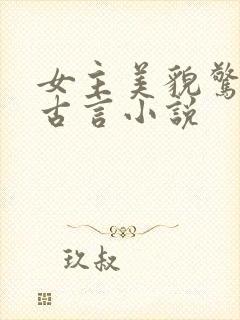 女主美貌驚
古言小説
玖叔